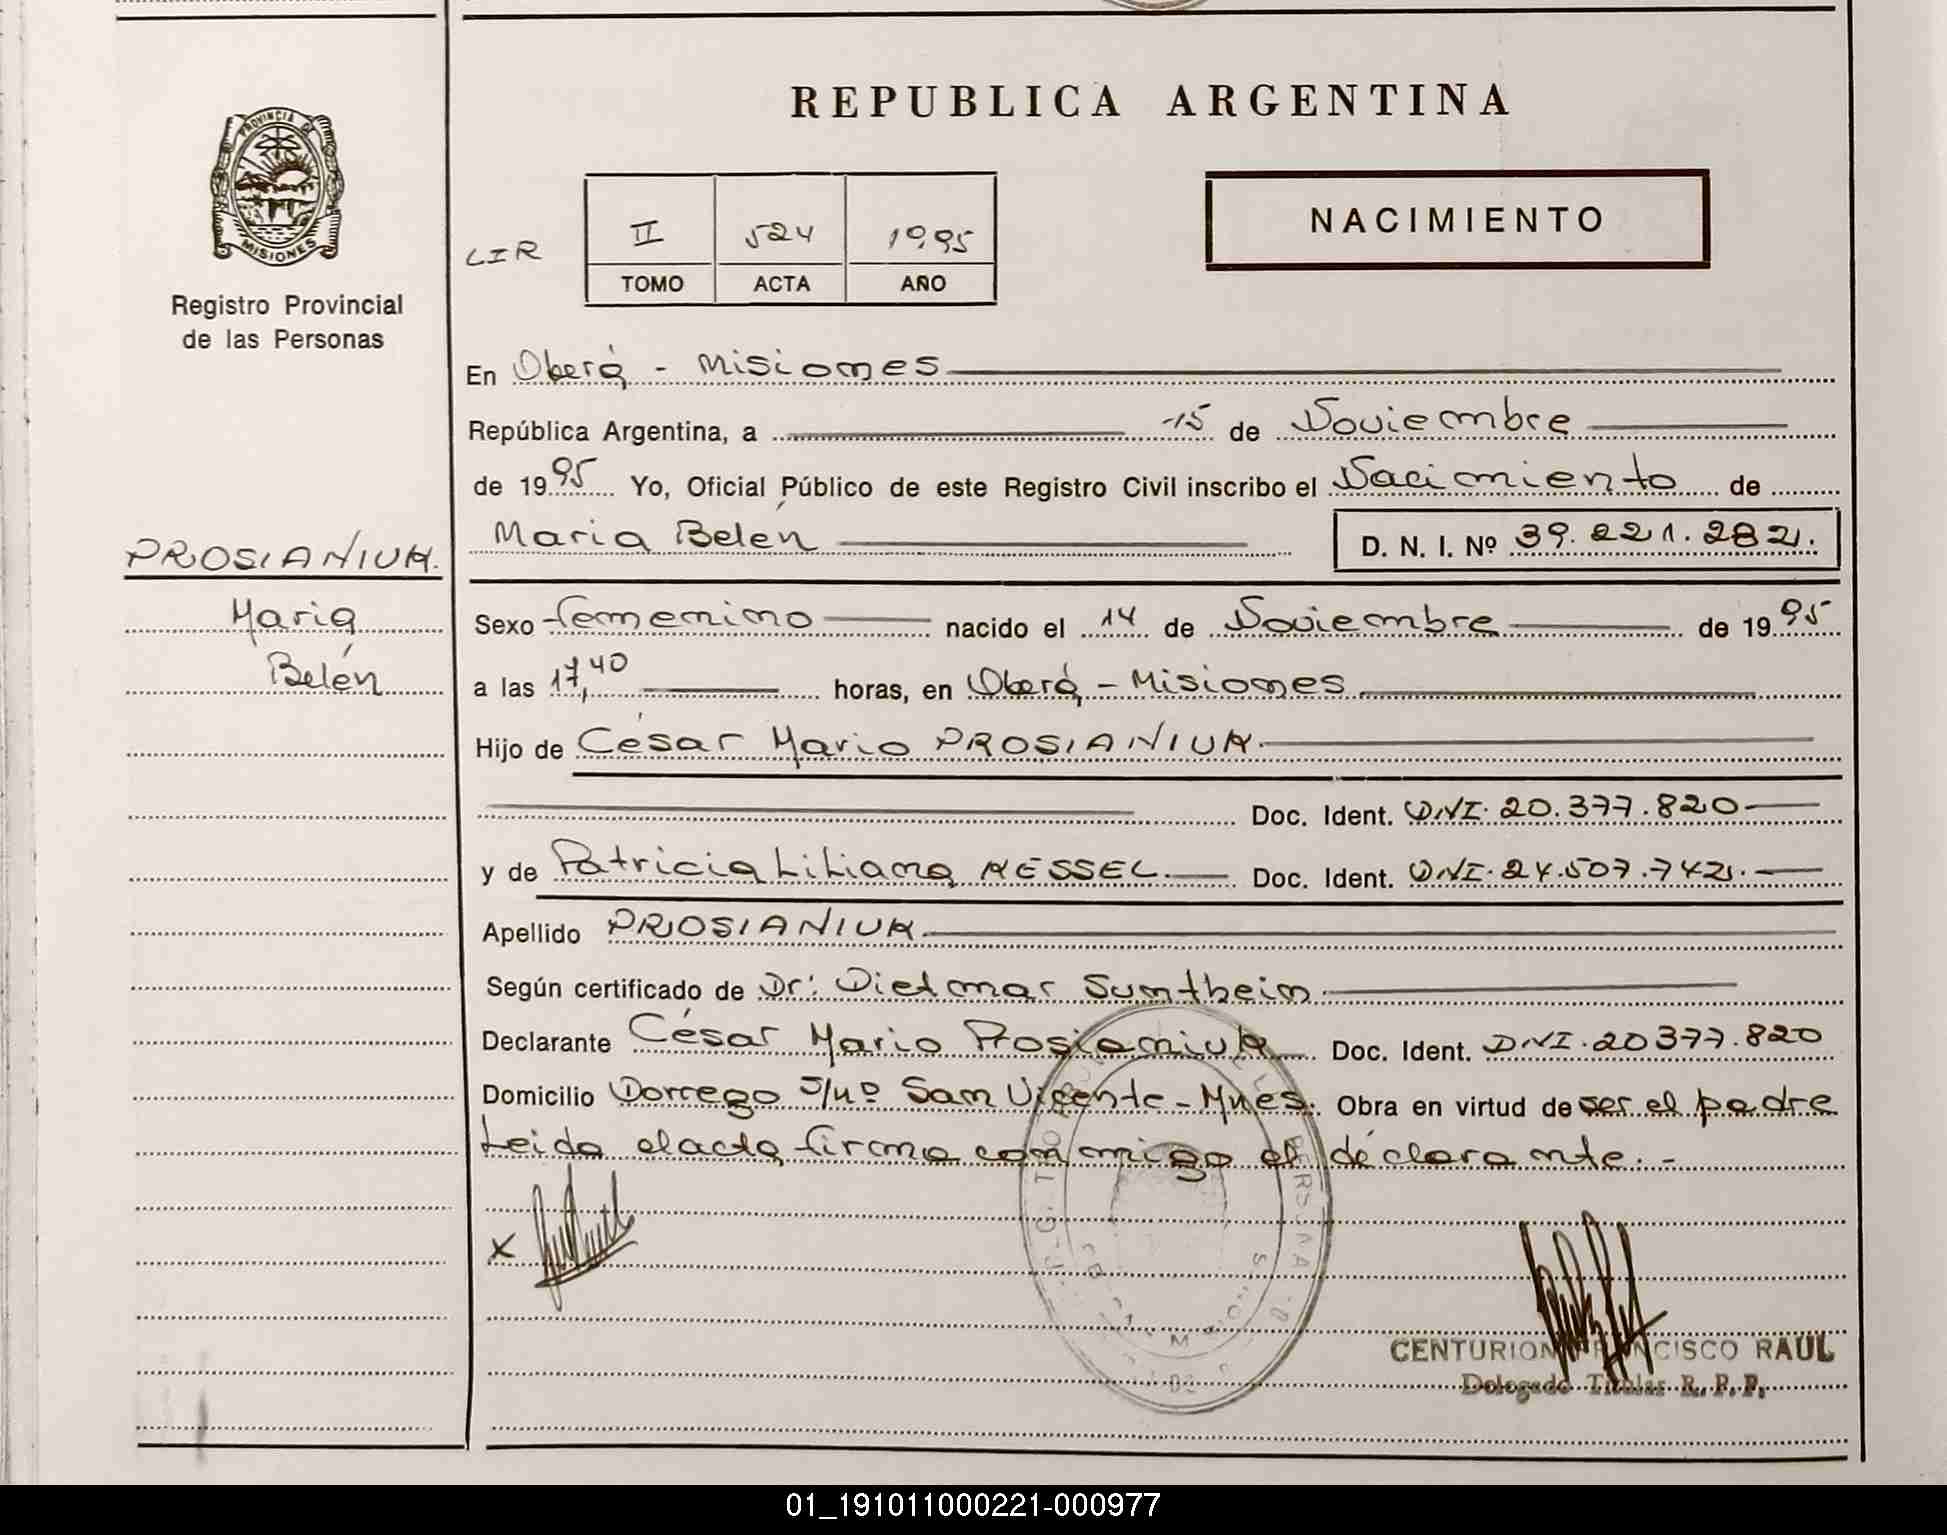 REPUBLICA ARGENTINA
PROVINCIA DE
MISIONES
Registro Provincial
de las Personas
LIR
II 524 1995
TOMO ACTA AÑO
NACIMIENTO
En Oberá - Misiones
República Argentina, a 15 de Noviembre
de 1995 Yo, Oficial Público de este Registro Civil inscribo el Nacimiento de
Maria Belén D. N. I. Nº 39.221.282.
PROSIANIUK.
Maria
Belén
Sexo femenino nacido el 14 de Noviembre de 1995
a las 17,40 horas, en Oberá - Misiones
Hijo de César Mario PROSIANIUK.
Doc. Ident. DNI. 20.377.820
y de Patricia Liliana KESSEL. Doc. Ident. DNI. 24.507.742.
Apellido PROSIANIUK.
Según certificado de Dr: Dietmar Sumthein
Declarante César Mario Prosianiuk Doc. Ident. DNI. 20377.820
Domicilio Dorrego S/nº San Vicente - Mnes. Obra en virtud de ser el padre
Leida el acta firma conmigo el declarante. -
X
CENTURION FRANCISCO RAUL
Delegado Titular R. P. P.
01_191011000221-000977